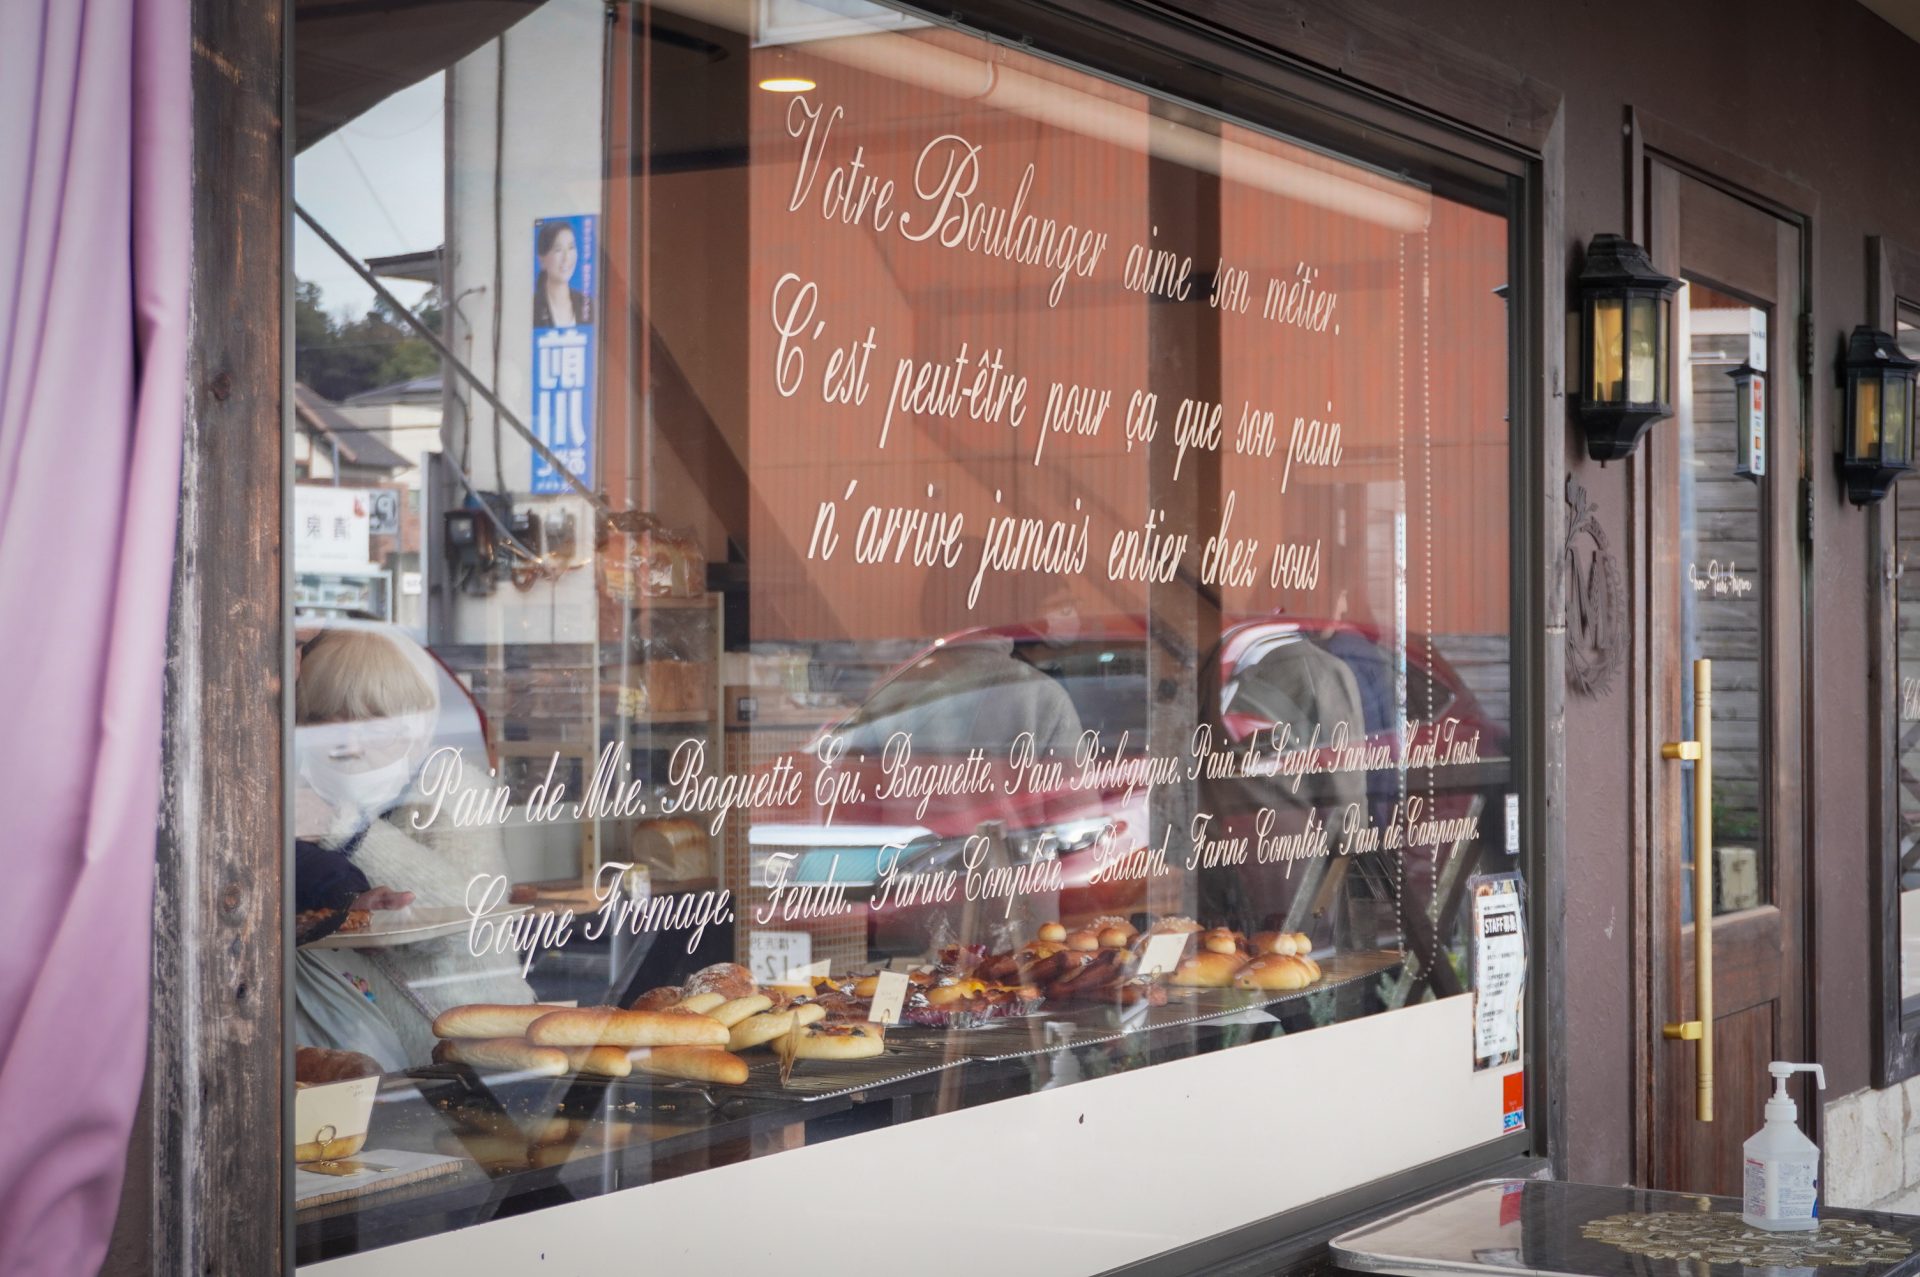 Votre Boulanger aime son métier.
C'est peut-être pour ça que son pain
n'arrive jamais entier chez vous
Pain de Mie. Baguette Epi. Baguette. Pain Biologique. Pain de Seigle. Parisien. Hard Toast.
Coupe Fromage. Fendu. Farine Complête. Batard. Farine Complête. Pain de Campagne.
STAFF募集
SECOM
M